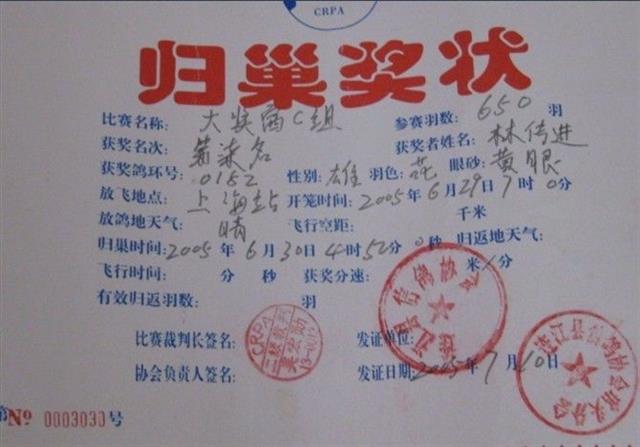 CRPA
归巢奖状
比赛名称: 大奖商C组 参赛羽数: 650 羽
获奖名次: 第柒名 获奖者姓名: 林传进
获奖鸽环号: 0152 性别: 雄 羽色: 花 眼砂: 黄眼
放飞地点: 上海站 开笼时间: 2005年6月29日7时0分
放鸽地天气: 晴 飞行空距: 千米
归巢时间: 2005年6月30日4时52分0秒 归返地天气:
飞行时间: 分 秒 获奖分速: 米/分
有效归返羽数: 羽
比赛裁判长签名: 发证单位:
协会负责人签名: 发证日期: 2005年7月10日
第№ 0003030号
CRPA
二级裁判
连江县信鸽协会
连江县信鸽协会